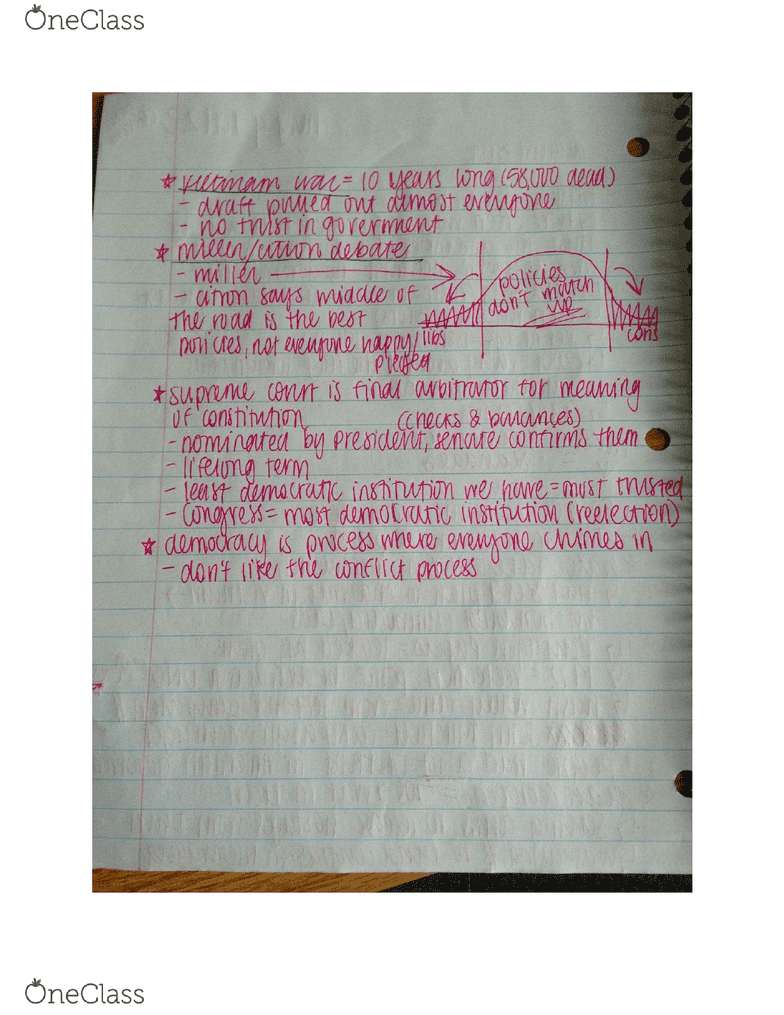 OneClass
☆ Vietnam war = 10 years long (58,000 dead)
- draft pulled out almost everyone
- no trist in goverment
☆ miller/citron debate
- miller
policies
- citron says middle of
don't match
the road is the best
up
policies, not everyone happy/ libs
cons
pleged
☆ supreme court is final arbitrator for meaning
of constitution (checks & balances)
- nominated by president, senate confirms them
- lifelong term
- least democratic institution we have = most trusted
- Congress = most democratic institution (reelection)
☆ democracy is process where everyone chimes in
- don't like the conflict process
OneClass